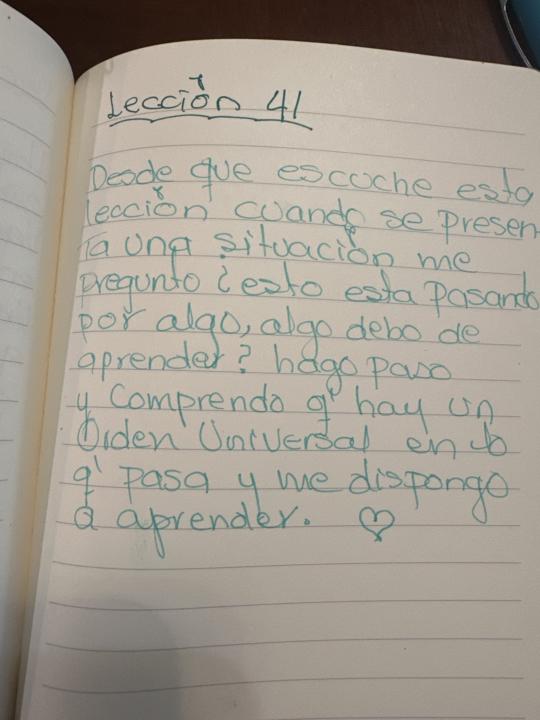 Lección 41
Desde que escuche esta
lección cuando se presen
ta una situación me
pregunto ¿esto esta pasando
por algo, algo debo de
aprender? hago pausa
y Comprendo q' hay un
Orden Universal en lo
q' pasa y me dispongo
a aprender. ♡